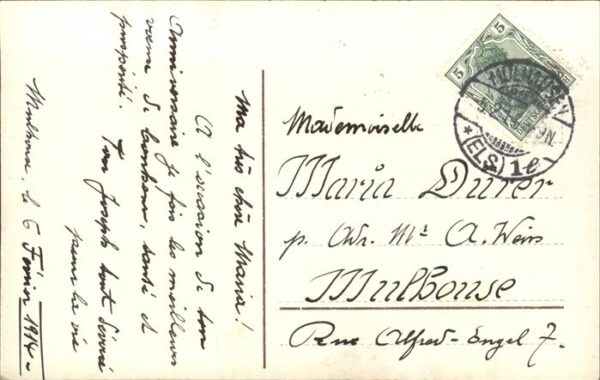 Ma très chère Maria!
A l'occasion de ton
Anniversaire je fais les meilleurs
vœux de bonheur, santé et
prospérité.
Ton Joseph tout dévoué
pour la vie
Mulhouse, le 6 Février 1914
5 5
MÜLHAUSEN
*(ELS.) 1 e
Mademoiselle
Maria Durer
p. Adr. Mr A. Weiss
Mulhouse
Rue Alfred-Engel 7.